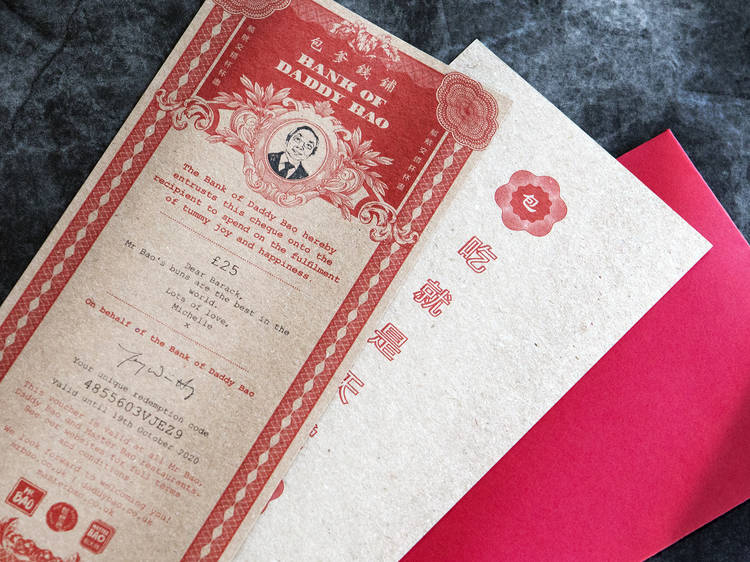 包爹錢鋪
BANK OF
DADDY BAO
The Bank of Daddy Bao hereby
entrusts this cheque onto the
recipient to spend on the fulfilment
of tummy joy and happiness.
£25
Dear Barack,
Mr Bao's buns are the best in the
world.
Lots of love,
Michelle
x
On behalf of the Bank of Daddy Bao
Your unique redemption code
4855603VJEZ9
Valid until 19th October 2020
This voucher is valid at all Mr Bao,
Daddy Bao and Master Bao restaurants.
See our websites for full terms
and conditions.
We look forward to welcoming you!
mrbao.co.uk | daddybao.co.uk
masterbao.co.uk
MR
BAO
MASTER
BAO
包
吃就是代